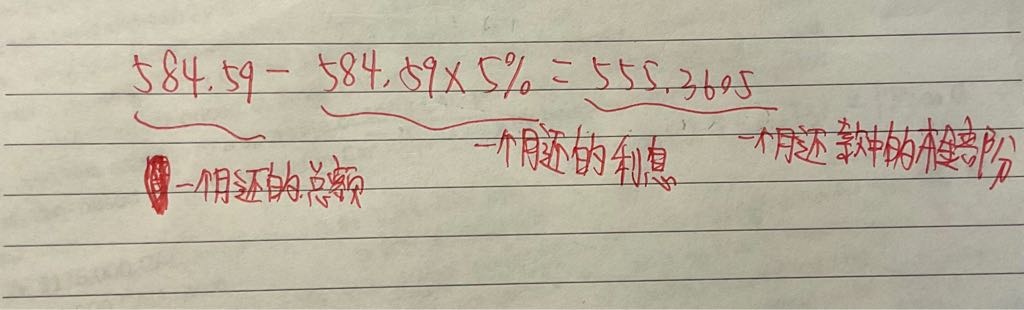 584.59 - 584.59 × 5% = 555.3605
一个月还的利息 一个月还款中的本金部分
一个月还的总额